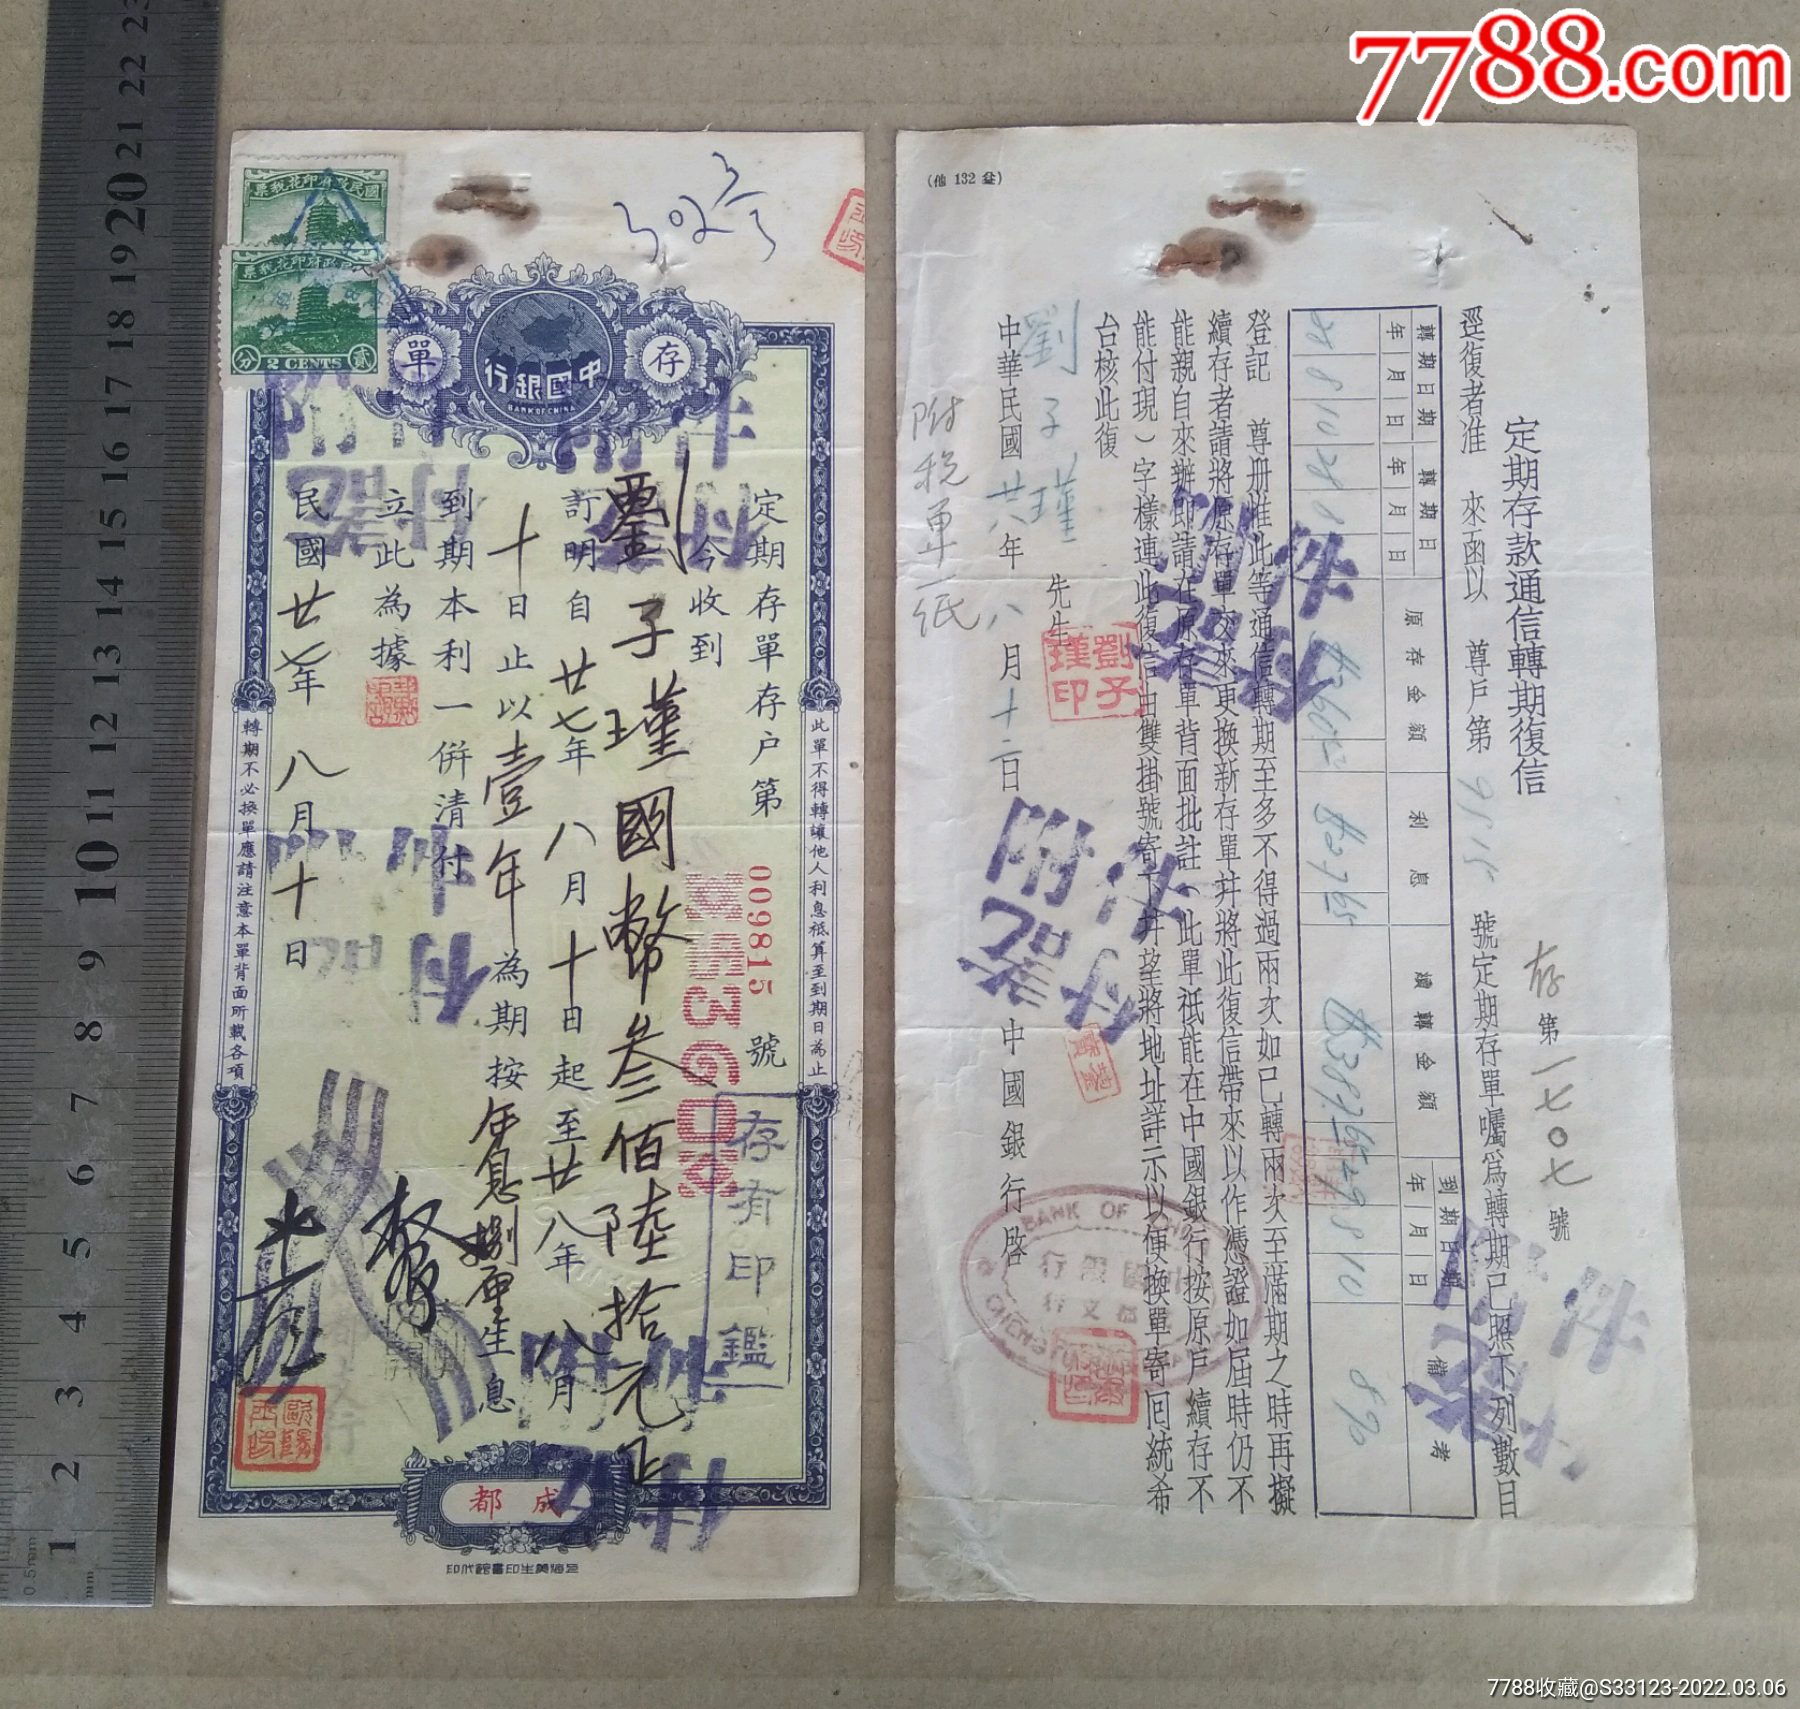 7788.com
國民政府印花稅票
國民政府印花稅票
2 CENTS
分
貳
存
單
中國銀行
BANK OF CHINA
定期存單存户第 009815 號
今收到
劉子瑾國幣叁佰陸拾元正
訂明自廿七年八月十日起至廿八年八月
十日止以壹年為期按年息捌厘生息
到期本利一併清付
立此為據
民國廿七年八月十日
此單不得轉讓他人利息祗算至到期日為止
轉期不必換單應請注意本單背面所載各項
存有印鑑
成都
附件
附件
(他 132 叁)
定期存款通信轉期復信
存第一七〇七號
逕復者准 來函以 尊戶第 9815 號定期存單囑爲轉期已照下列數目
轉期日期 年月日
轉期日 年月日
原存金額
利息
續轉金額
到期日 年月日
備考
28 8 10 28 8
登記 尊册惟此等通信轉期至多不得過兩次如已轉兩次至滿期之時再擬
續存者請將原存單交來更換新存單并將此復信帶來以作憑證如屆時仍不
能親自來辦即請在原存單背面批註(此單祗能在中國銀行按原户續存不
能付現)字樣連此復信由雙掛號寄下并望將地址詳示以便換單寄回統希
台核此復
劉子瑾 先生
劉子瑾印
中華民國廿八年八月十二日 中國銀行啓
附稅單一紙
BANK OF CHINA
中國銀行
7788收藏@S33123-2022.03.06
1
2
3
4
5
6
7
8
9
10
11
12
13
14
15
16
17
18
19
20
21
22
23
0.5mm
mm